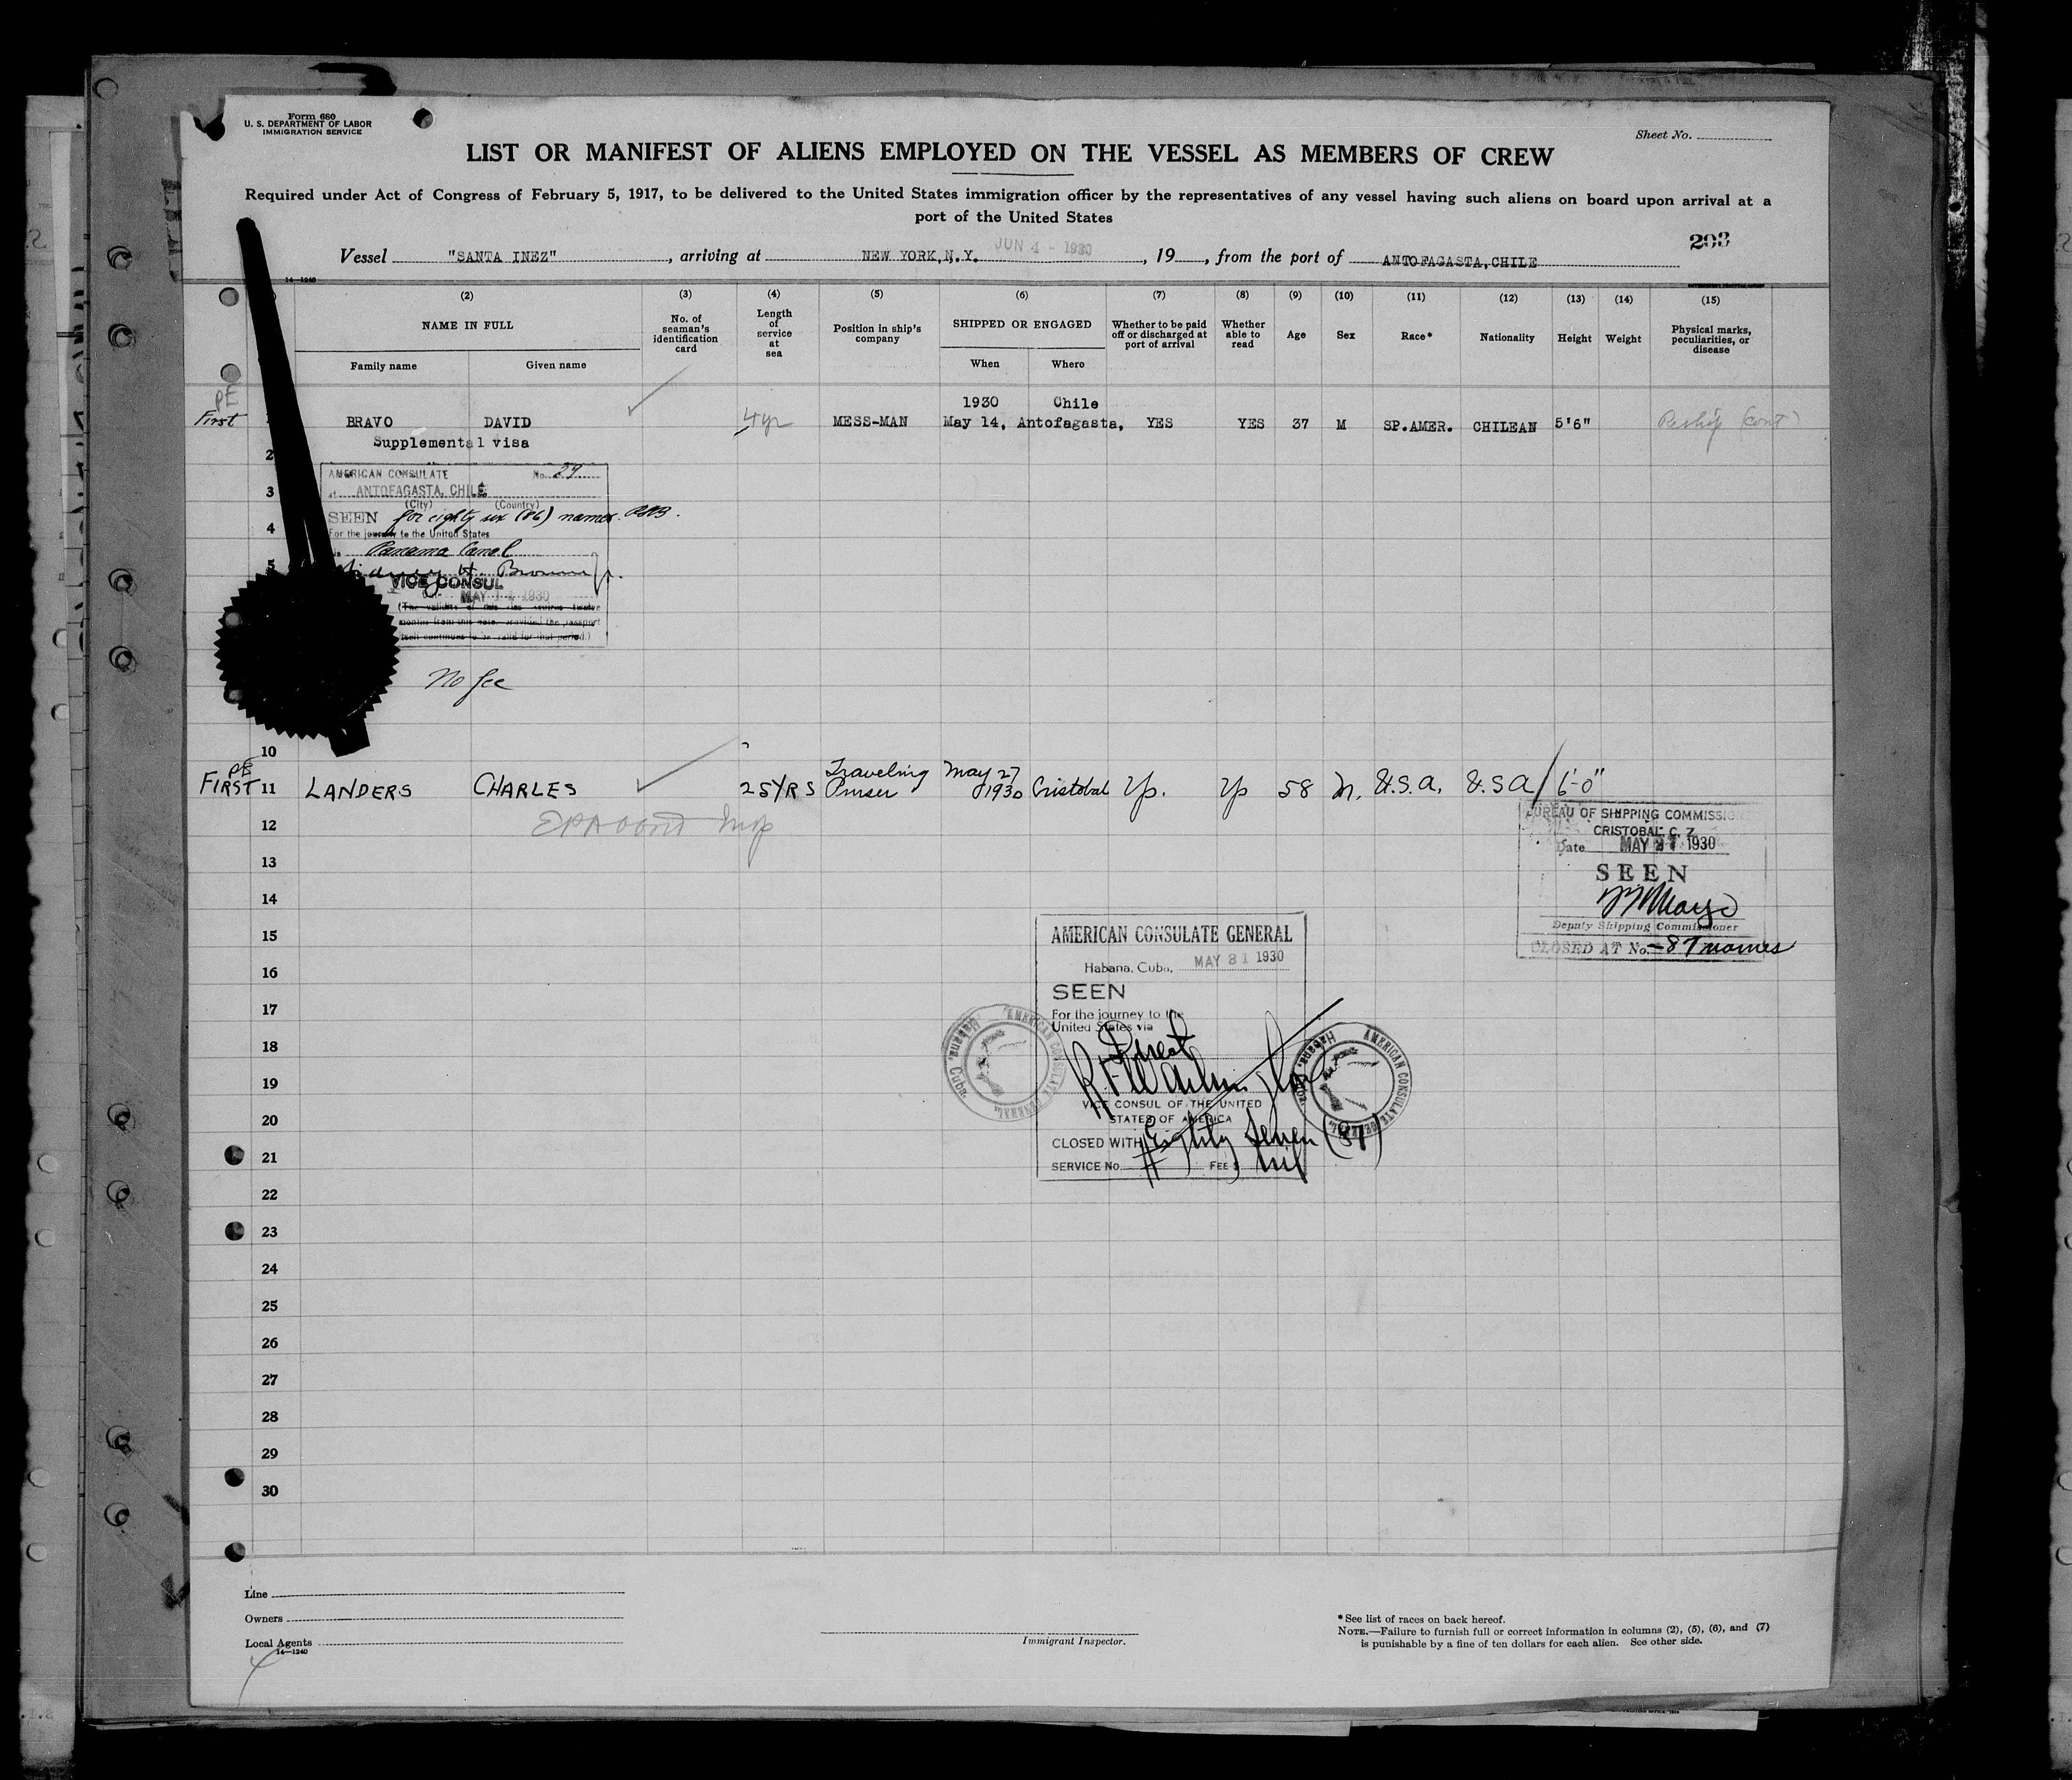 Form 680
U. S. DEPARTMENT OF LABOR
IMMIGRATION SERVICE
Sheet No.
LIST OR MANIFEST OF ALIENS EMPLOYED ON THE VESSEL AS MEMBERS OF CREW
Required under Act of Congress of February 5, 1917, to be delivered to the United States immigration officer by the representatives of any vessel having such aliens on board upon arrival at a
port of the United States
203
Vessel "SANTA INEZ", arriving at NEW YORK, N.Y. JUN 4 - 1930, 19, from the port of ANTOFAGASTA, CHILE
14-1240
(2) (3) (4) (5) (6) (7) (8) (9) (10) (11) (12) (13) (14) (15)
NAME IN FULL
Family name Given name
No. of seaman's identification card
Length of service at sea
Position in ship's company
SHIPPED OR ENGAGED
When Where
Whether to be paid off or discharged at port of arrival
Whether able to read
Age
Sex
Race*
Nationality
Height
Weight
Physical marks, peculiarities, or disease
PE
1930 Chile
First BRAVO DAVID 4 yr MESS-MAN May 14, Antofagasta, YES YES 37 M SP.AMER. CHILEAN 5'6"
Supplemental visa
2
AMERICAN CONSULATE No. 29
3
at ANTOFAGASTA, CHILE
(City) (Country)
SEEN for eighty six (86) names.
4
For the journey to the United States
via Panama Canal
5
Sidney H. Browne Jr.
VICE CONSUL
MAY 14 1930
(The validity of this visa expires twelve
months from this date, provided the passport
itself continues to be valid for that period.)
No fee
10
PE
FIRST 11 LANDERS CHARLES 25 YRS Traveling Purser May 27 1930 Cristobal Yes. Yes 58 M. U.S.A. U.S.A 6'-0"
12
13
14
15
16
17
18
19
20
21
22
23
24
25
26
27
28
29
30
BUREAU OF SHIPPING COMMISSIONER
CRISTOBAL C. Z.
Date MAY 27 1930
SEEN
Deputy Shipping Commissioner
CLOSED AT No. - 87 names
AMERICAN CONSULATE GENERAL
Habana, Cuba, MAY 31 1930
SEEN
For the journey to the
United States via
Direct
VICE CONSUL OF THE UNITED
STATES OF AMERICA
CLOSED WITH Eighty Seven (87)
SERVICE No. FEE $ nil
AMERICAN CONSULATE GENERAL Habana, Cuba.
AMERICAN CONSULATE GENERAL Habana, Cuba.
Line
Owners
Local Agents
14-1240
Immigrant Inspector.
*See list of races on back hereof.
NOTE.—Failure to furnish full or correct information in columns (2), (5), (6), and (7)
is punishable by a fine of ten dollars for each alien. See other side.